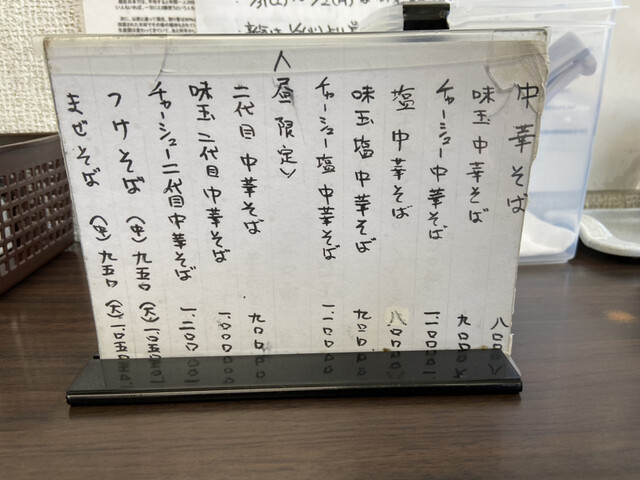 中華そば 八〇〇
味玉中華そば 九〇〇
チャーシュー中華そば 一、一〇〇
塩中華そば 八〇〇
味玉塩中華そば 九〇〇
チャーシュー塩中華そば 一、一〇〇
〈昼限定〉
二代目中華そば 九〇〇
味玉二代目中華そば 一、〇〇〇
チャーシュー二代目中華そば 一、二〇〇
つけそば (中)九五〇 (大)一〇五〇
まぜそば (中)九五〇 (大)一〇五〇